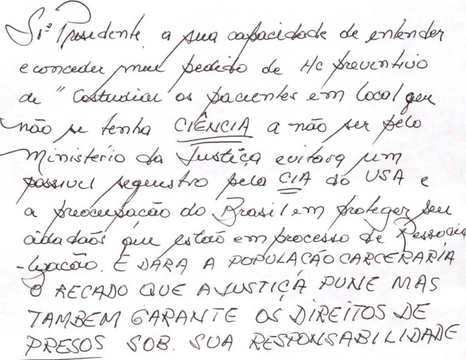 Srº Presidente, a sua capacidade de entender
e conceder meu pedido de Hc preventivo
de "Custudiar os pacientes em local que
não se tenha CIÊNCIA a não ser pelo
Ministerio da Justiça evitara um
possivel sequestro pela CIA do USA e
a preocupação do Brasil em proteger seu
cidadãos que estão em processo de Ressocia
-lização. E DARA A POPULAÇÃO CARCERARIA
O RECADO QUE A JUSTIÇA PUNE MAS
TAMBEM GARANTE OS DIREITOS DE
PRESOS SOB. SUA RESPONSABILIDADE